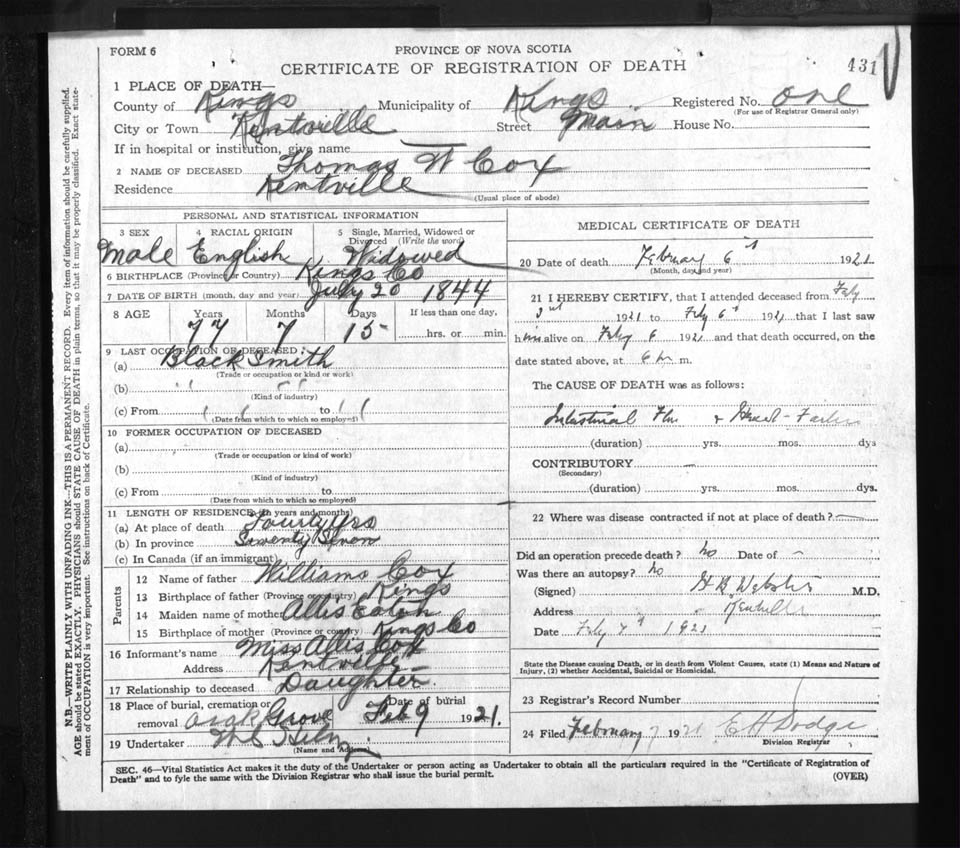 FORM 6
PROVINCE OF NOVA SCOTIA
CERTIFICATE OF REGISTRATION OF DEATH
431
1 PLACE OF DEATH—
County of Kings Municipality of Kings Registered No. one
(For use of Registrar General only)
City or Town Kentville Street Main House No.
If in hospital or institution, give name
2 NAME OF DECEASED Thomas W Cox
Residence Kentville
(Usual place of abode)
PERSONAL AND STATISTICAL INFORMATION
3 SEX 4 RACIAL ORIGIN 5 Single, Married, Widowed or Divorced (Write the word)
Male English Widowed
6 BIRTHPLACE (Province or Country) Kings Co
7 DATE OF BIRTH (month, day and year) July 20 1844
8 AGE Years Months Days If less than one day,
77 7 15 hrs. or min.
9 LAST OCCUPATION OF DECEASED
(a) Black Smith
(Trade or occupation or kind of work)
(b) " "
(Kind of industry)
(c) From " to "
(Date from which to which so employed)
10 FORMER OCCUPATION OF DECEASED
(a)
(Trade or occupation or kind of work)
(b)
(Kind of industry)
(c) From to
(Date from which to which so employed)
11 LENGTH OF RESIDENCE (in years and months)
(a) At place of death Fourty Yrs
(b) In province Seventy Seven
(c) In Canada (if an immigrant)
Parents
12 Name of father Williams Cox
13 Birthplace of father (Province or country) Kings
14 Maiden name of mother Allis Eaton
15 Birthplace of mother (Province or country) Kings Co
16 Informant's name Miss Allis Cox
Address Kentville
17 Relationship to deceased Daughter
18 Place of burial, cremation or removal Oak Grove Date of burial Feb 9 1921.
19 Undertaker
(Name and Address)
MEDICAL CERTIFICATE OF DEATH
20 Date of death February 6th 1921
(Month, day and year)
21 I HEREBY CERTIFY, that I attended deceased from Feby
3rd 1921 to Feby 6th 1921 that I last saw
him alive on Feby 6 1921 and that death occurred, on the
date stated above, at 6 P.m.
The CAUSE OF DEATH was as follows:
Intestinal Flu & Heart-Failure
(duration) yrs. mos. dys
CONTRIBUTORY —
(Secondary)
(duration) yrs. mos. dys.
22 Where was disease contracted if not at place of death? —
Did an operation precede death? no Date of —
Was there an autopsy? no
(Signed) H B Webster M.D.
Address Kentville
Date Feby 7th 1921
State the Disease causing Death, or in death from Violent Causes, state (1) Means and Nature of
Injury, (2) whether Accidental, Suicidal or Homicidal.
23 Registrar's Record Number
24 Filed February 7 1921 E H Dodge
Division Registrar
SEC. 46—Vital Statistics Act makes it the duty of the Undertaker or person acting as Undertaker to obtain all the particulars required in the "Certificate of Registration of
Death" and to fyle the same with the Division Registrar who shall issue the burial permit.
(OVER)
N.B.—WRITE PLAINLY WITH UNFADING INK—THIS IS A PERMANENT RECORD. Every item of information should be carefully supplied.
AGE should be stated EXACTLY. PHYSICIANS should STATE CAUSE OF DEATH in plain terms, so that it may be properly classified. Exact state-
ment of OCCUPATION is very important. See instructions on back of Certificate.